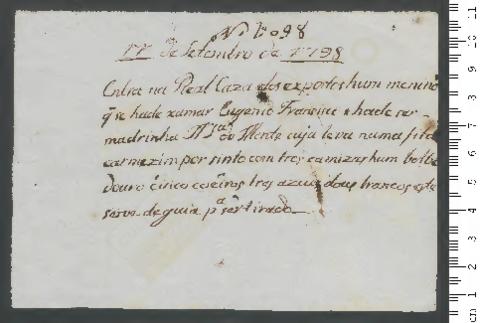 Nº 1098
11 de Setembro de 1798
Entra na Real Caza dos expostos hum menino
q̃ se hade xamar Eugenio Francisco e hade ser
madrinha N. Srª do Monte cuja leva numa fita
carmezim por sinto com tres camizas hum botão
douro sinco coeiros tres azuis dous brancos esta
serve de guia pª ser tirado